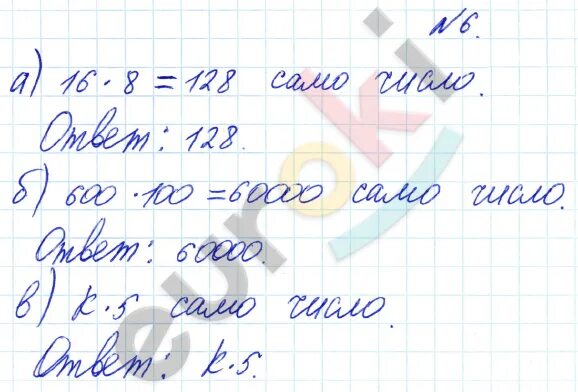 №6.
а) 16·8=128 само число.
Ответ: 128.
б) 600·100=60000 само число.
Ответ: 60000.
в) k·5 само число.
Ответ: k·5.
euroki